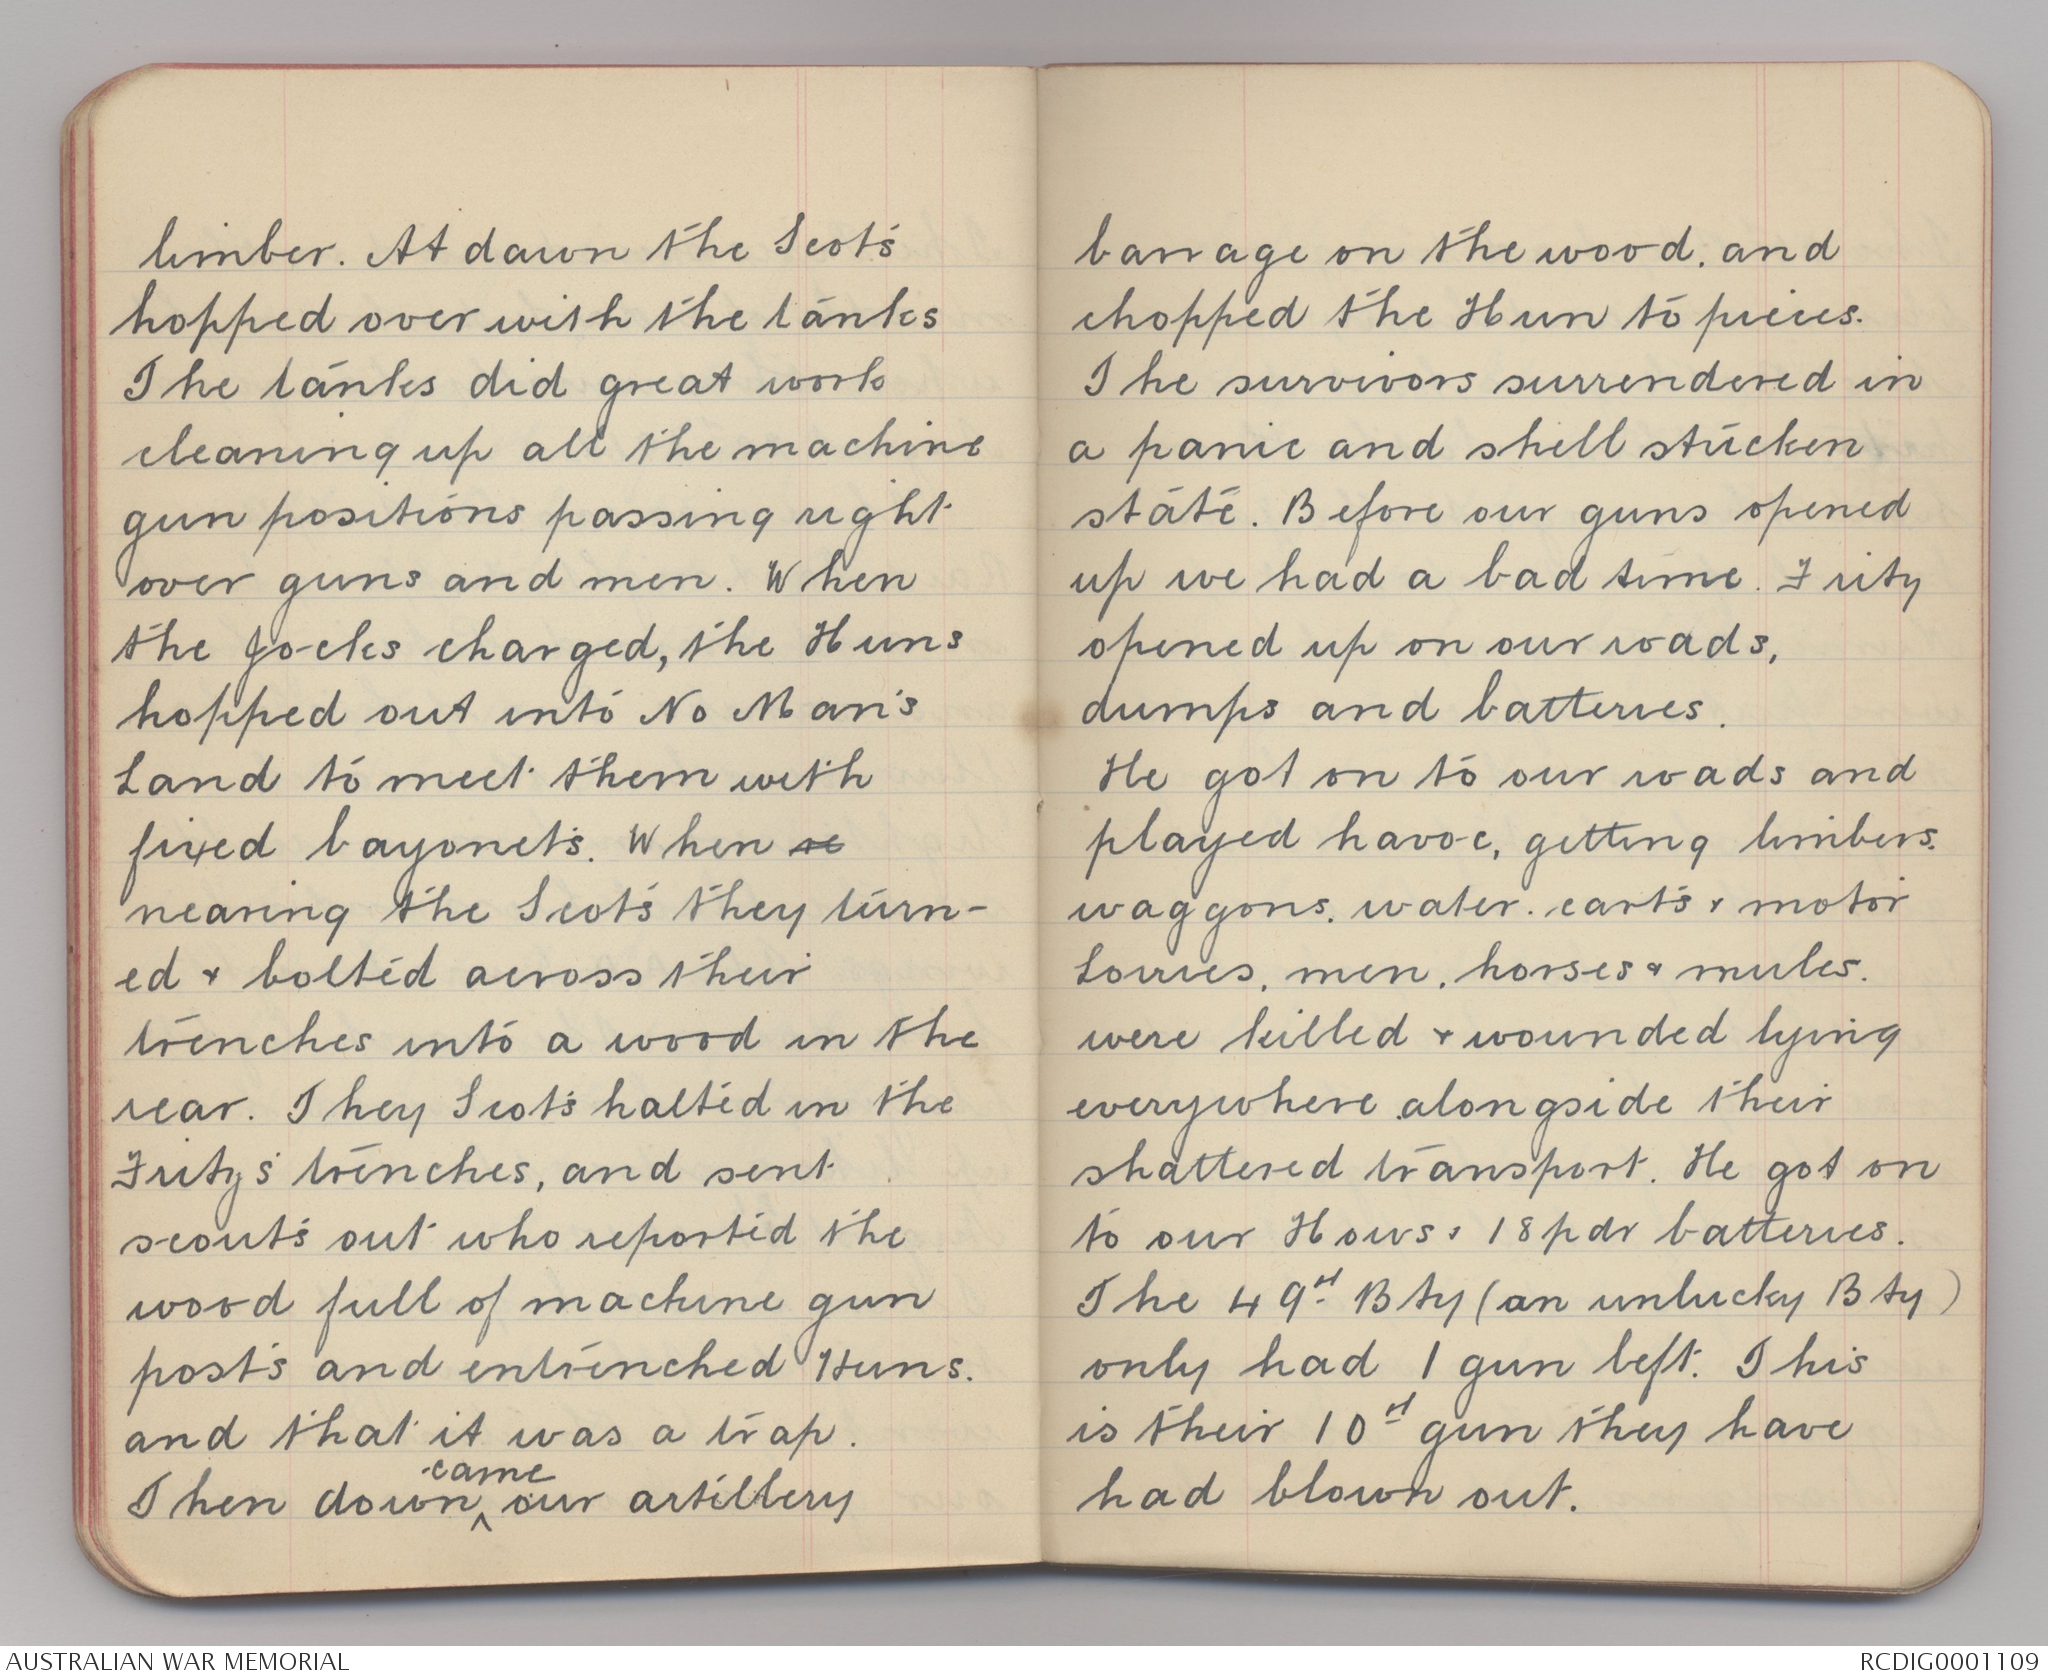 limber. At dawn the Scots
hopped over with the tanks
The tanks did great work
cleaning up all the machine
gun positions passing right
over guns and men. When
the Jocks charged, the Huns
hopped out into No Man's
Land to meet them with
fixed bayonets. When re
nearing the Scots they turn-
ed & bolted across their
trenches into a wood in the
rear. They Scots halted in the
Fritz's trenches, and sent
scouts out who reported the
wood full of machine gun
posts and entrenched Huns.
and that it was a trap.
Then down came our artillery
barrage on the wood. and
chopped the Hun to pieces.
The survivors surrendered in
a panic and shell stucken
state. Before our guns opened
up we had a bad time. Fritz
opened up on our roads,
dumps and batteries.
He got on to our roads and
played havoc, getting limbers.
waggons. water. carts & motor
Lorries, men, horses & mules.
were killed & wounded lying
everywhere alongside their
shattered transport. He got on
to our Hows & 18pdr batteries.
The 49th Bty (an unlucky Bty)
only had 1 gun left. This
is their 10th gun they have
had blown out.
AUSTRALIAN WAR MEMORIAL
RCDIG0001109